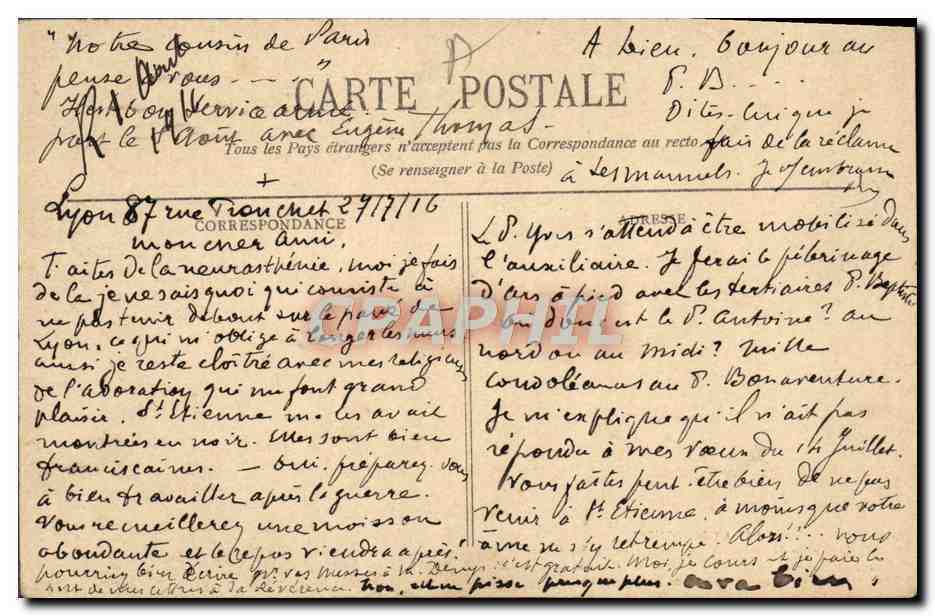 "Notre cousin de Paris
pense à vous - - - "
Il est bon service armé
part le 1er Août avec Eugène Thomas -
A bien, bonjour au
P. B. ...
Dites-lui que je
fais de la réclame
à ses manuels. Je
CARTE POSTALE
Tous les Pays étrangers n'acceptent pas la Correspondance au recto
(Se renseigner à la Poste)
CORRESPONDANCE
Lyon 87 rue Tronchet 27/7/16
mon cher ami,
Faites de la neurasthénie, moi je fais
de la je ne sais quoi qui consiste à
ne pas tenir debout sur le pavé de
Lyon, ce qui m'oblige à longer les murs
aussi je reste cloîtré avec mes religieuses
de l'adoration qui me font grand
plaisir. St Etienne me les avait
montrées en noir. Elles sont bien
franciscaines. - Oui, préparez-vous
à bien travailler après la guerre.
Vous recueillerez une moisson
abondante et le repos viendra après!
pourriez bien écrire
non, elle ne pisse presque plus.
ADRESSE
Le P. Yves s'attend à être mobilisé dans
l'auxiliaire. Je ferai le pèlerinage
d'Ars à pied avec les tertiaires P. Baptiste
ou donc est le P. Antoine? au
nord ou au midi? mille
condoléances au P. Bonaventure.
Je m'explique qu'il n'ait pas
répondu à mes vœux du 14 Juillet.
Vous faites peut-être bien de ne pas
venir à St Etienne, à moins que votre
âme ne s'y retrempe. Alors!... vous
c'est gratuit. Moi, je cours et je paie les
CRAPHIL